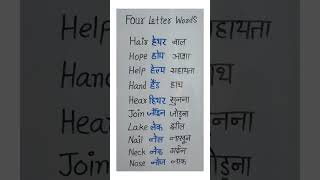 Four Letter Words
Hair हेयर बाल
Hope होप आशा
Help हेल्प सहायता
Hand हैंड हाथ
Hear हियर सुनना
Join जॉइन जोड़ना
Lake लेक झील
Nail नेल नाखून
Neck नेक गर्दन
Nose नोज नाक